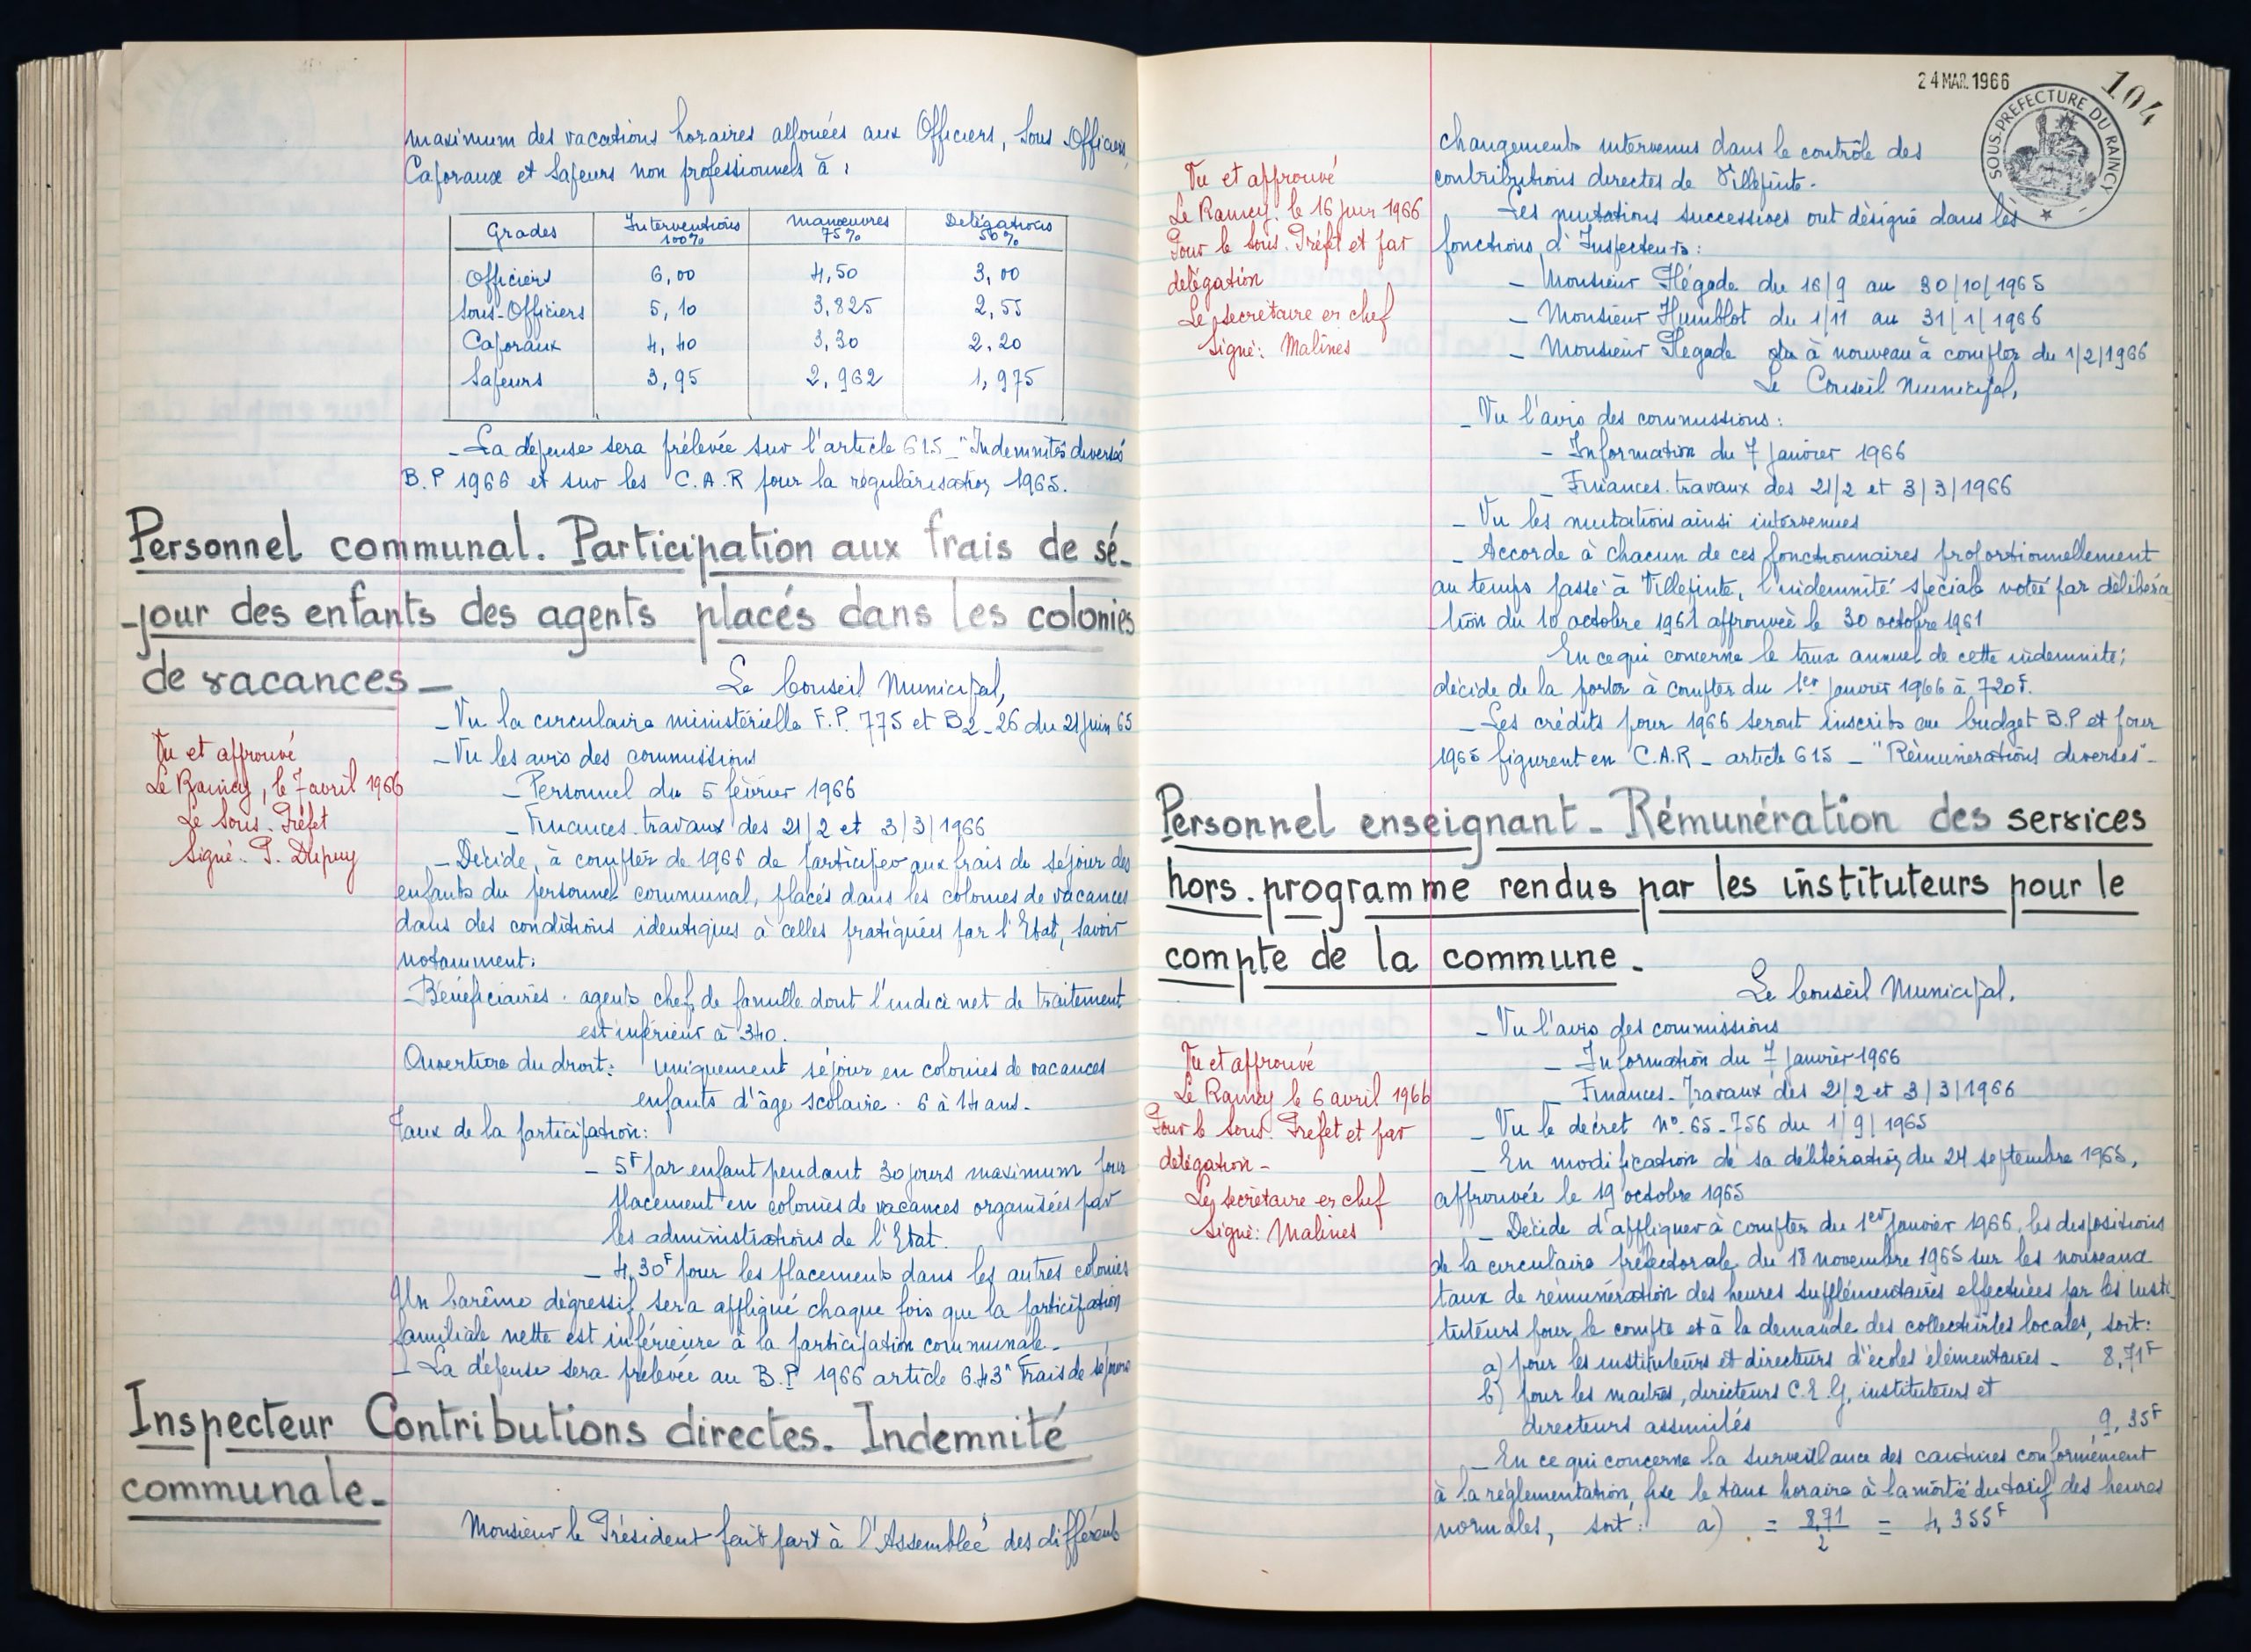 maximum des vacations horaires allouées aux Officiers, Sous Officiers,
Caporaux et Sapeurs non professionnels à :
Grades Interventions 100% Manœuvres 75% Délégations 50%
Officiers 6,00 4,50 3,00
Sous-Officiers 5,10 3,825 2,55
Caporaux 4,40 3,30 2,20
Sapeurs 3,95 2,962 1,975
- La dépense sera prélevée sur l'article 615 - "Indemnités diverses
B.P 1966 et sur les C.A.R pour la régularisation 1965.
Personnel communal. Participation aux frais de sé-
-jour des enfants des agents placés dans les colonies
de vacances -
Le Conseil Municipal,
- Vu la circulaire ministérielle F.P. 775 et B2-26 du 21 juin 65
- Vu les avis des commissions
- Personnel du 5 février 1966
- Finances-travaux des 21/2 et 3/3/1966
- Décide, à compter de 1966 de participer aux frais de séjour des
enfants du personnel communal, placés dans les colonies de vacances
dans des conditions identiques à celles pratiquées par l'Etat, savoir
notamment :
- Bénéficiaires. agents chef de famille dont l'indice net de traitement
est inférieur à 340.
Ouverture du droit : uniquement séjour en colonies de vacances
enfants d'âge scolaire. 6 à 14 ans.
Taux de la participation :
- 5F par enfant pendant 30 jours maximum pour
placement en colonies de vacances organisées par
les administrations de l'Etat.
- 4,30F pour les placements dans les autres colonies
Un barême dégressif sera appliqué chaque fois que la participation
familiale nette est inférieure à la participation communale.
- La dépense sera prélevée au B.P 1966 article 643 " Frais de séjours
Vu et approuvé
Le Raincy, le 7 avril 1966
Le Sous-Préfet
Signé : P. Dupuy
Inspecteur Contributions directes. Indemnité
communale -
Monsieur le Président fait part à l'Assemblée des différents
24 MAR. 1966
104
SOUS-PREFECTURE DU RAINCY
changements intervenus dans le contrôle des
contributions directes de Villepinte.
Les mutations successives ont désigné dans les
fonctions d'Inspecteurs :
- Monsieur Plégade du 16/9 au 30/10/1965
- Monsieur Humblot du 1/11 au 31/1/1966
- Monsieur Plegade à nouveau à compter du 1/2/1966
Le Conseil Municipal,
- Vu l'avis des commissions :
- Information du 7 Janvier 1966
- Finances-travaux des 21/2 et 3/3/1966
- Vu les mutations ainsi intervenues
- Accorde à chacun de ces fonctionnaires proportionnellement
au temps passé à Villepinte, l'indemnité spéciale votée par délibéra
tion du 10 octobre 1961 approuvée le 30 octobre 1961
En ce qui concerne le taux annuel de cette indemnité ;
décide de la porter à compter du 1er Janvier 1966 à 720F.
- Les crédits pour 1966 seront inscrits au budget B.P et pour
1965 figurent en C.A.R - article 615 - "Rémunérations diverses" -
Vu et approuvé
Le Raincy, le 16 juin 1966
Pour le Sous-Préfet et par
délégation
Le secrétaire en chef
Signé : Malines
Personnel enseignant - Rémunération des services
hors-programme rendus par les instituteurs pour le
compte de la commune -
Le Conseil Municipal,
- Vu l'avis des commissions
- Information du 7 Janvier 1966
Finances-Travaux des 21/2 et 3/3/1966
- Vu le décret n° 65-756 du 1/9/1965
- En modification de sa délibération du 24 septembre 1965,
approuvée le 19 octobre 1965
- Décide d'appliquer à compter du 1er Janvier 1966, les dispositions
de la circulaire préfectorale du 18 novembre 1965 sur les nouveaux
taux de rémunération des heures supplémentaires effectuées par les Insti-
tuteurs pour le compte et à la demande des collectivités locales, soit :
a) pour les instituteurs et directeurs d'écoles élémentaires - 8,71F
b) pour les maîtres, directeurs C.E.G, instituteurs et
directeurs assimilés 9,35F
- En ce qui concerne la surveillance des cantines conformément
à la réglementation, fixe le taux horaire à la moitié du tarif des heures
normales, soit : a) = 8,71/2 = 4,355F
Vu et approuvé
Le Raincy le 6 avril 1966
Pour le Sous-Prefet et par
délégation -
Le secrétaire en chef
Signé : Malines